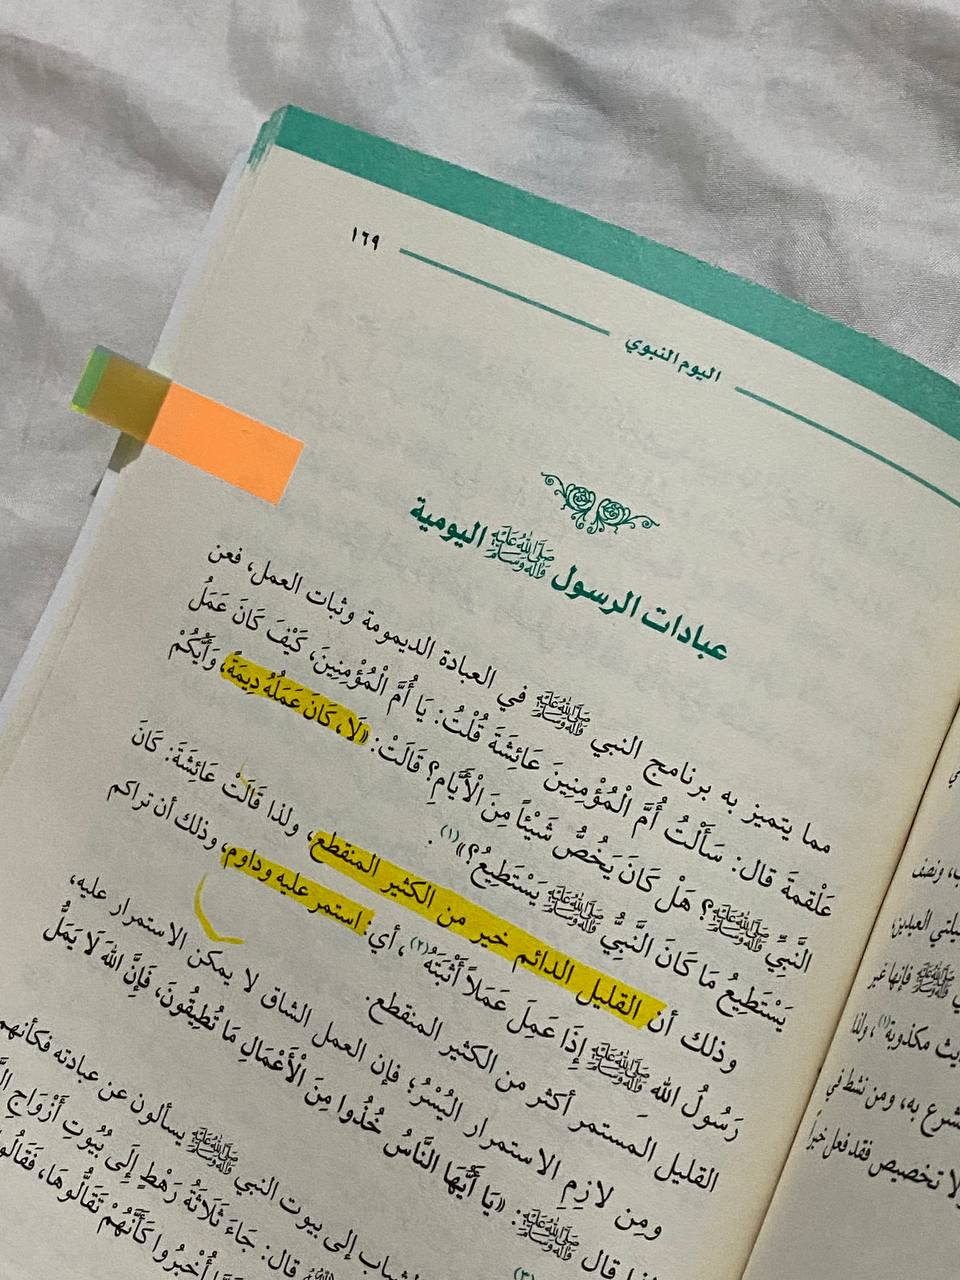 ١٦٩
اليوم النبوي
عبادات الرسول ﷺ اليومية
مما يتميز به برنامج النبي ﷺ في العبادة الديمومة وثبات العمل، فعن
عَلْقمةَ قال: سَأَلْتُ أُمَّ الْمُؤْمِنِينَ عَائِشَةَ قُلْتُ: يَا أُمَّ الْمُؤْمِنِينَ، كَيْفَ كَانَ عَمَلُ
النَّبِيِّ ﷺ؟ هَلْ كَانَ يَخُصُّ شَيْئاً مِنَ الْأَيَّامِ؟ قَالَتْ: «لَا، كَانَ عَمَلُهُ دِيمَةً، وَأَيُّكُمْ
يَسْتَطِيعُ مَا كَانَ النَّبِيُّ ﷺ يَسْتَطِيعُ؟»(١).
وذلك أن القليل الدائم خير من الكثير المنقطع، ولذا قَالَتْ عَائِشَةَ: كَانَ
رَسُولُ اللهِ ﷺ إِذَا عَمِلَ عَمَلاً أَثْبَتَهُ(٢)، أي: استمر عليه وداوم، وذلك أن تراكم
القليل المستمر أكثر من الكثير المنقطع.
ومِن لازِمِ الاستمرار اليُسْرُ؛ فإن العمل الشاق لا يمكن الاستمرار عليه،
لذا قال ﷺ: «يَا أَيُّهَا النَّاسُ خُذُوا مِنَ الْأَعْمَالِ مَا تُطِيقُونَ، فَإِنَّ اللهَ لَا يَمَلُّ
(٣)
إلى بيوت النبي ﷺ يسألون عن عبادته فكأنهم
قال: جَاءَ ثَلَاثَةُ رَهْطٍ إِلَى بُيُوتِ أَزْوَاجِ
أُخْبِرُوا كَأَنَّهُمْ تَقَالُّوهَا، فَقَالُوا
ونصف
العيدين،
ﷺ فإنها غير
مكذوبة(١)، ولذا
به، ومن نشط في
تخصيص فقد فعل خيراً